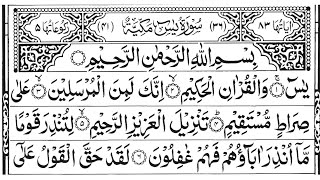 اٰیَاتُهَا ٨٣ (٣٦) سُوْرَةُ یٰسٓ مَکِّیَّةٌ (٤١) رُکُوْعَاتُهَا ٥
بِسْمِ اللّٰهِ الرَّحْمٰنِ الرَّحِیْمِ
یٰسٓ ۝١ وَالْقُرْاٰنِ الْحَکِیْمِ ۝٢ اِنَّكَ لَمِنَ الْمُرْسَلِیْنَ ۝٣ عَلٰی
صِرَاطٍ مُّسْتَقِیْمٍ ۝٤ تَنْزِیْلَ الْعَزِیْزِ الرَّحِیْمِ ۝٥ لِتُنْذِرَ قَوْمًا
مَّاۤ اُنْذِرَ اٰبَآؤُهُمْ فَهُمْ غٰفِلُوْنَ ۝٦ لَقَدْ حَقَّ الْقَوْلُ عَلٰۤی